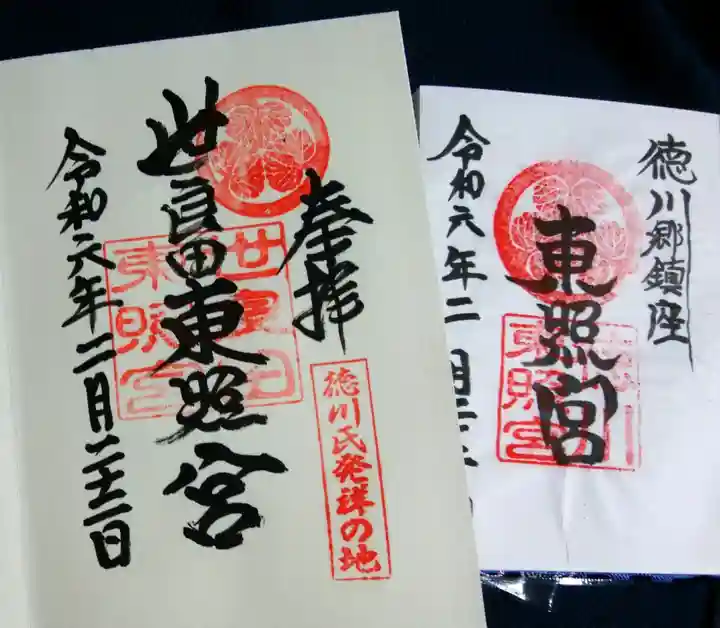 奉拝
世良田東照宮
令和六年二月二十二日
世良田
東照宮
徳川氏発祥の地
徳川郷鎮座
東照宮
令和六年二月二十二日
東照宮